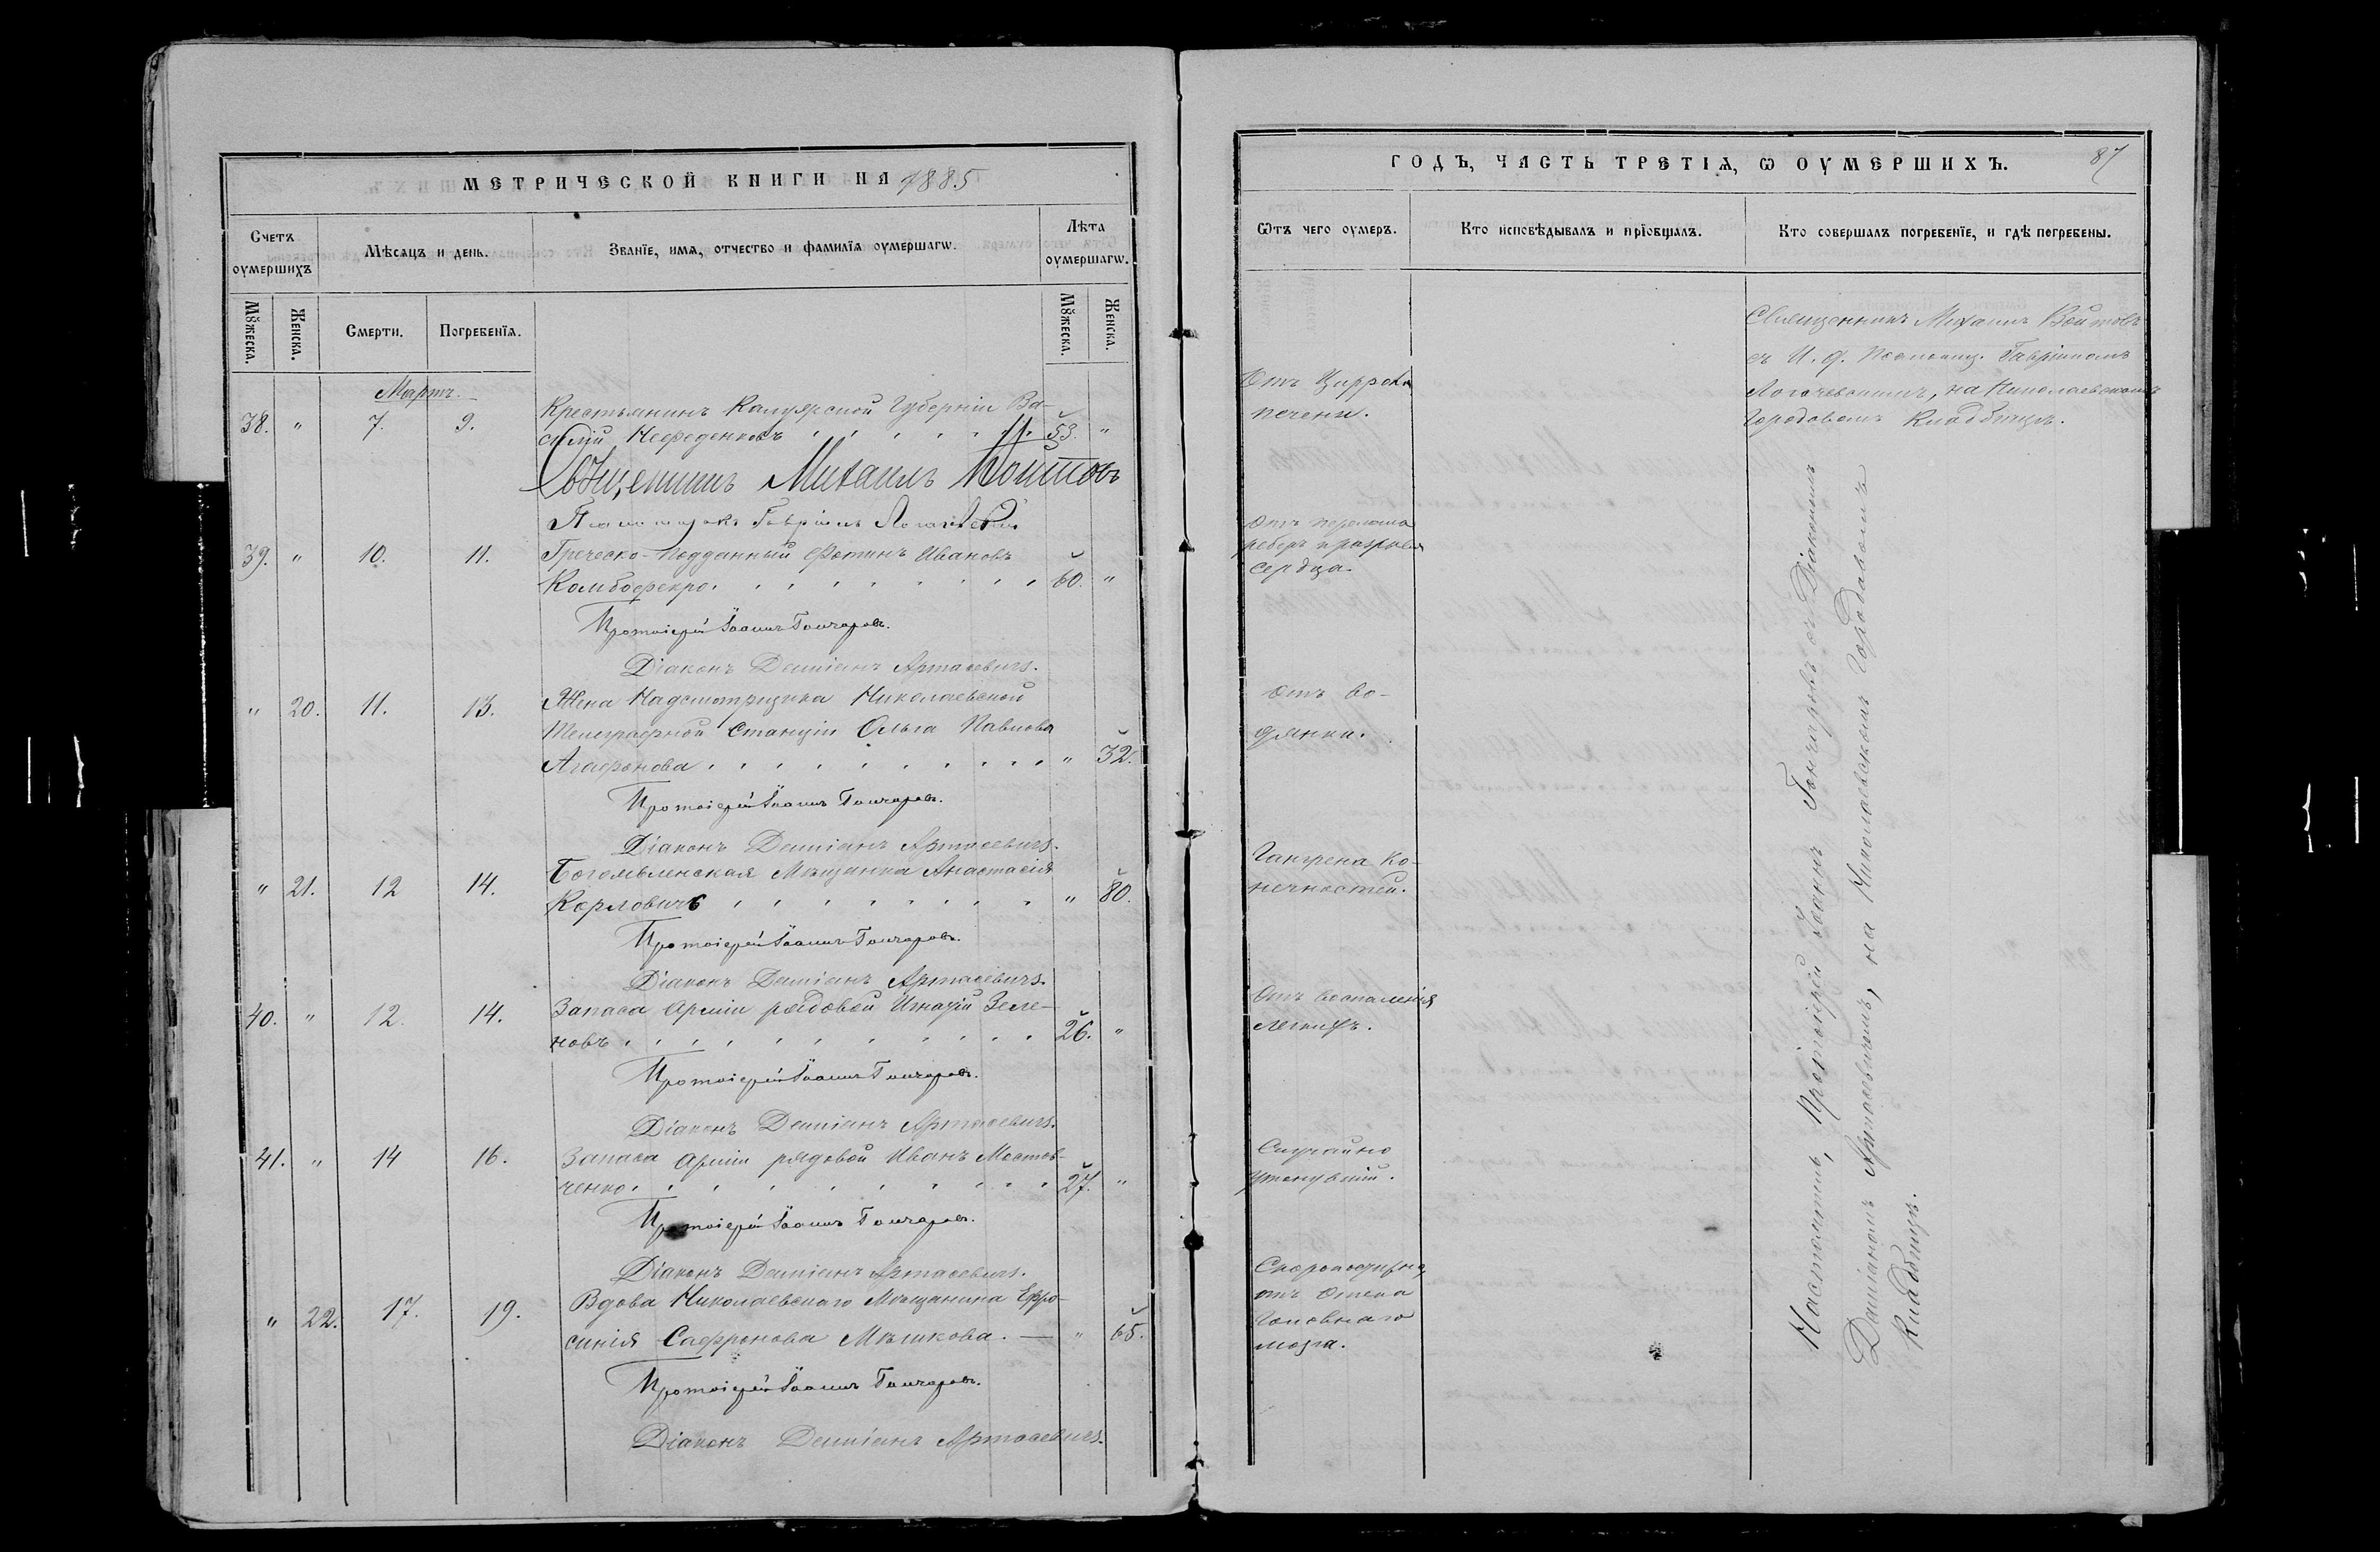 МЕТРИЧЕСКОЙ КНИГИ НА 1885
Счетъ оумершихъ
Мѣсяцъ и день.
Званїе, имя, отчество и фамилїя оумершагѡ.
Лѣта оумершагѡ.
Мꙋжеска.
Женска.
Смерти.
Погребенїя.
Мꙋжеска.
Женска.
Мартъ.
38. " 7. 9. Крестьянинъ Калужской Губерніи Ва-
силій Нефеденковъ 53. "
Священникъ Михаилъ Войтовъ
Псаломщикъ Гавріилъ
39. " 10. 11. Греческо-подданный Фотинъ Ивановъ
Комбофекро 60. "
Протоіерей Іоаннъ Гончаровъ.
Діаконъ Даміанъ Артасевичъ.
" 20. 11. 13. Жена Надсмотрщика Николаевской
Телеграфной Станціи Ольга Павлова
Агафонова " 32.
Протоіерей Іоаннъ Гончаровъ.
Діаконъ Даміанъ Артасевичъ.
" 21. 12 14. Богоявленская Мѣщанка Анастасія
Карловичъ " 80.
Протоіерей Іоаннъ Гончаровъ.
Діаконъ Даміанъ Артасевичъ.
40. " 12. 14. Запаса Арміи рядовой Игнатій Зеле-
новъ 26. "
Протоіерей Іоаннъ Гончаровъ.
Діаконъ Даміанъ Артасевичъ.
41. " 14 16. Запаса Арміи рядовой Иванъ Мостов-
ченко 27. "
Протоіерей Іоаннъ Гончаровъ.
Діаконъ Даміанъ Артасевичъ.
" 22. 17. 19. Вдова Николаевскаго Мѣщанина Ефро-
синія Сафронова Мѣшкова. — " 65.
Протоіерей Іоаннъ Гончаровъ.
Діаконъ Даміанъ Артасевичъ.
ГОДЪ, ЧАСТЬ ТРЕТІЯ, Ѡ ОУМЕРШИХЪ. 87
Ѿтъ чего оумеръ.
Кто исповѣдывалъ и прїобщалъ.
Кто совершалъ погребенїе, и гдѣ погребены.
Священникъ Михаилъ Войтовъ
съ И. д. Псаломщ. Гавріиломъ
на Николаевскомъ
Городовомъ Кладбищѣ.
Отъ Цирроза
печени.
Отъ перелома
реберъ и разрыва
сердца.
Отъ во-
дянки.
Гангрена ко-
нечностей.
Отъ воспаленія
легкихъ.
Случайно
утонувшій.
Скоропостижно,
отъ отека
головнаго
мозга.
Настоятель, Протоіерей Іоаннъ Гончаровъ съ Діакономъ
Даміаномъ Артасевичемъ, на Николаевскомъ Городовомъ
Кладбищѣ.